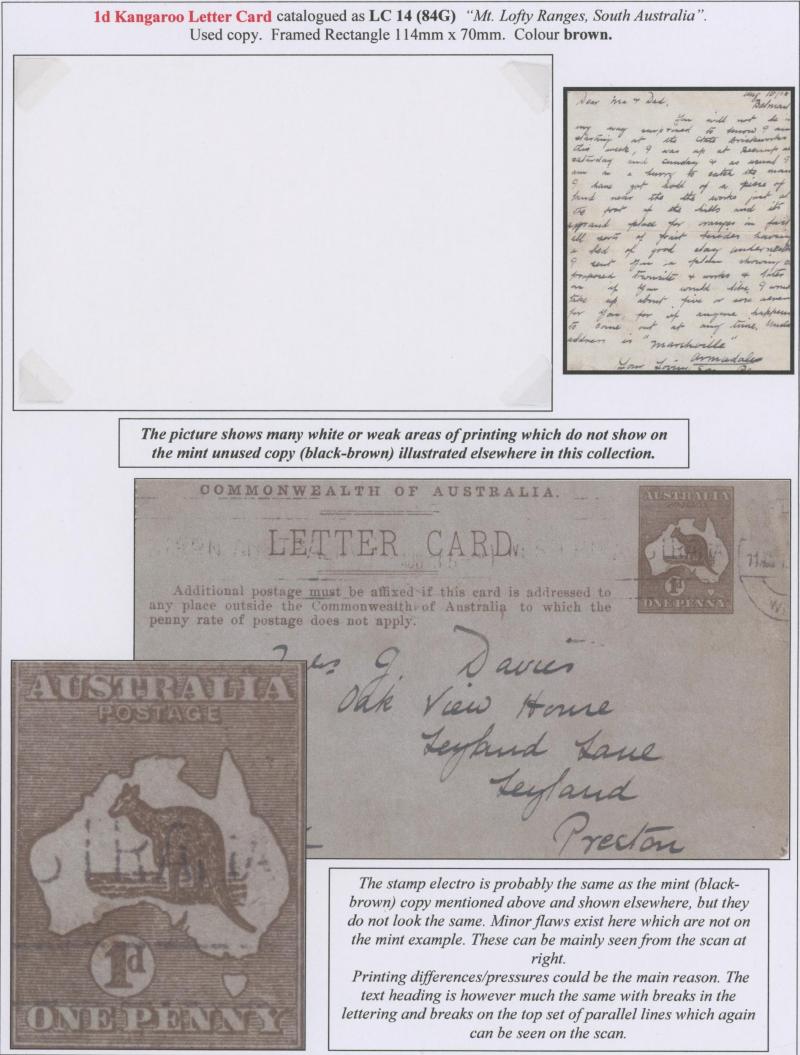 1d Kangaroo Letter Card catalogued as LC 14 (84G) “Mt. Lofty Ranges, South Australia”.
Used copy. Framed Rectangle 114mm x 70mm. Colour brown.
Dear Ma & Dad,
You will not be in
my way surprised to know I am
starting at the State Brickworks
this week, I was up at
saturday and sunday & as usual I
am in a hurry to catch the mail
I have got hold of a piece of
land near the the works just at
the foot of the hills and its
place for oranges in fact
all sorts of fruit besides having
a bed of good clay underneath
I sent you a plan showing a
proposed & works & later
on if you would like I would
take up about five or acres
for you, for if anyone happens
to come out at any time.
address is "Marchville"
Armadale
Your Loving Son
The picture shows many white or weak areas of printing which do not show on
the mint unused copy (black-brown) illustrated elsewhere in this collection.
COMMONWEALTH OF AUSTRALIA.
LETTER CARD
Additional postage must be affixed if this card is addressed to
any place outside the Commonwealth of Australia to which the
penny rate of postage does not apply.
AUSTRALIA
POSTAGE
1d
ONE PENNY
G. Davies
Oak View House
Leyland Lane
Leyland
Preston
AUSTRALIA
POSTAGE
1d
ONE PENNY
The stamp electro is probably the same as the mint (black-
brown) copy mentioned above and shown elsewhere, but they
do not look the same. Minor flaws exist here which are not on
the mint example. These can be mainly seen from the scan at
right.
Printing differences/pressures could be the main reason. The
text heading is however much the same with breaks in the
lettering and breaks on the top set of parallel lines which again
can be seen on the scan.